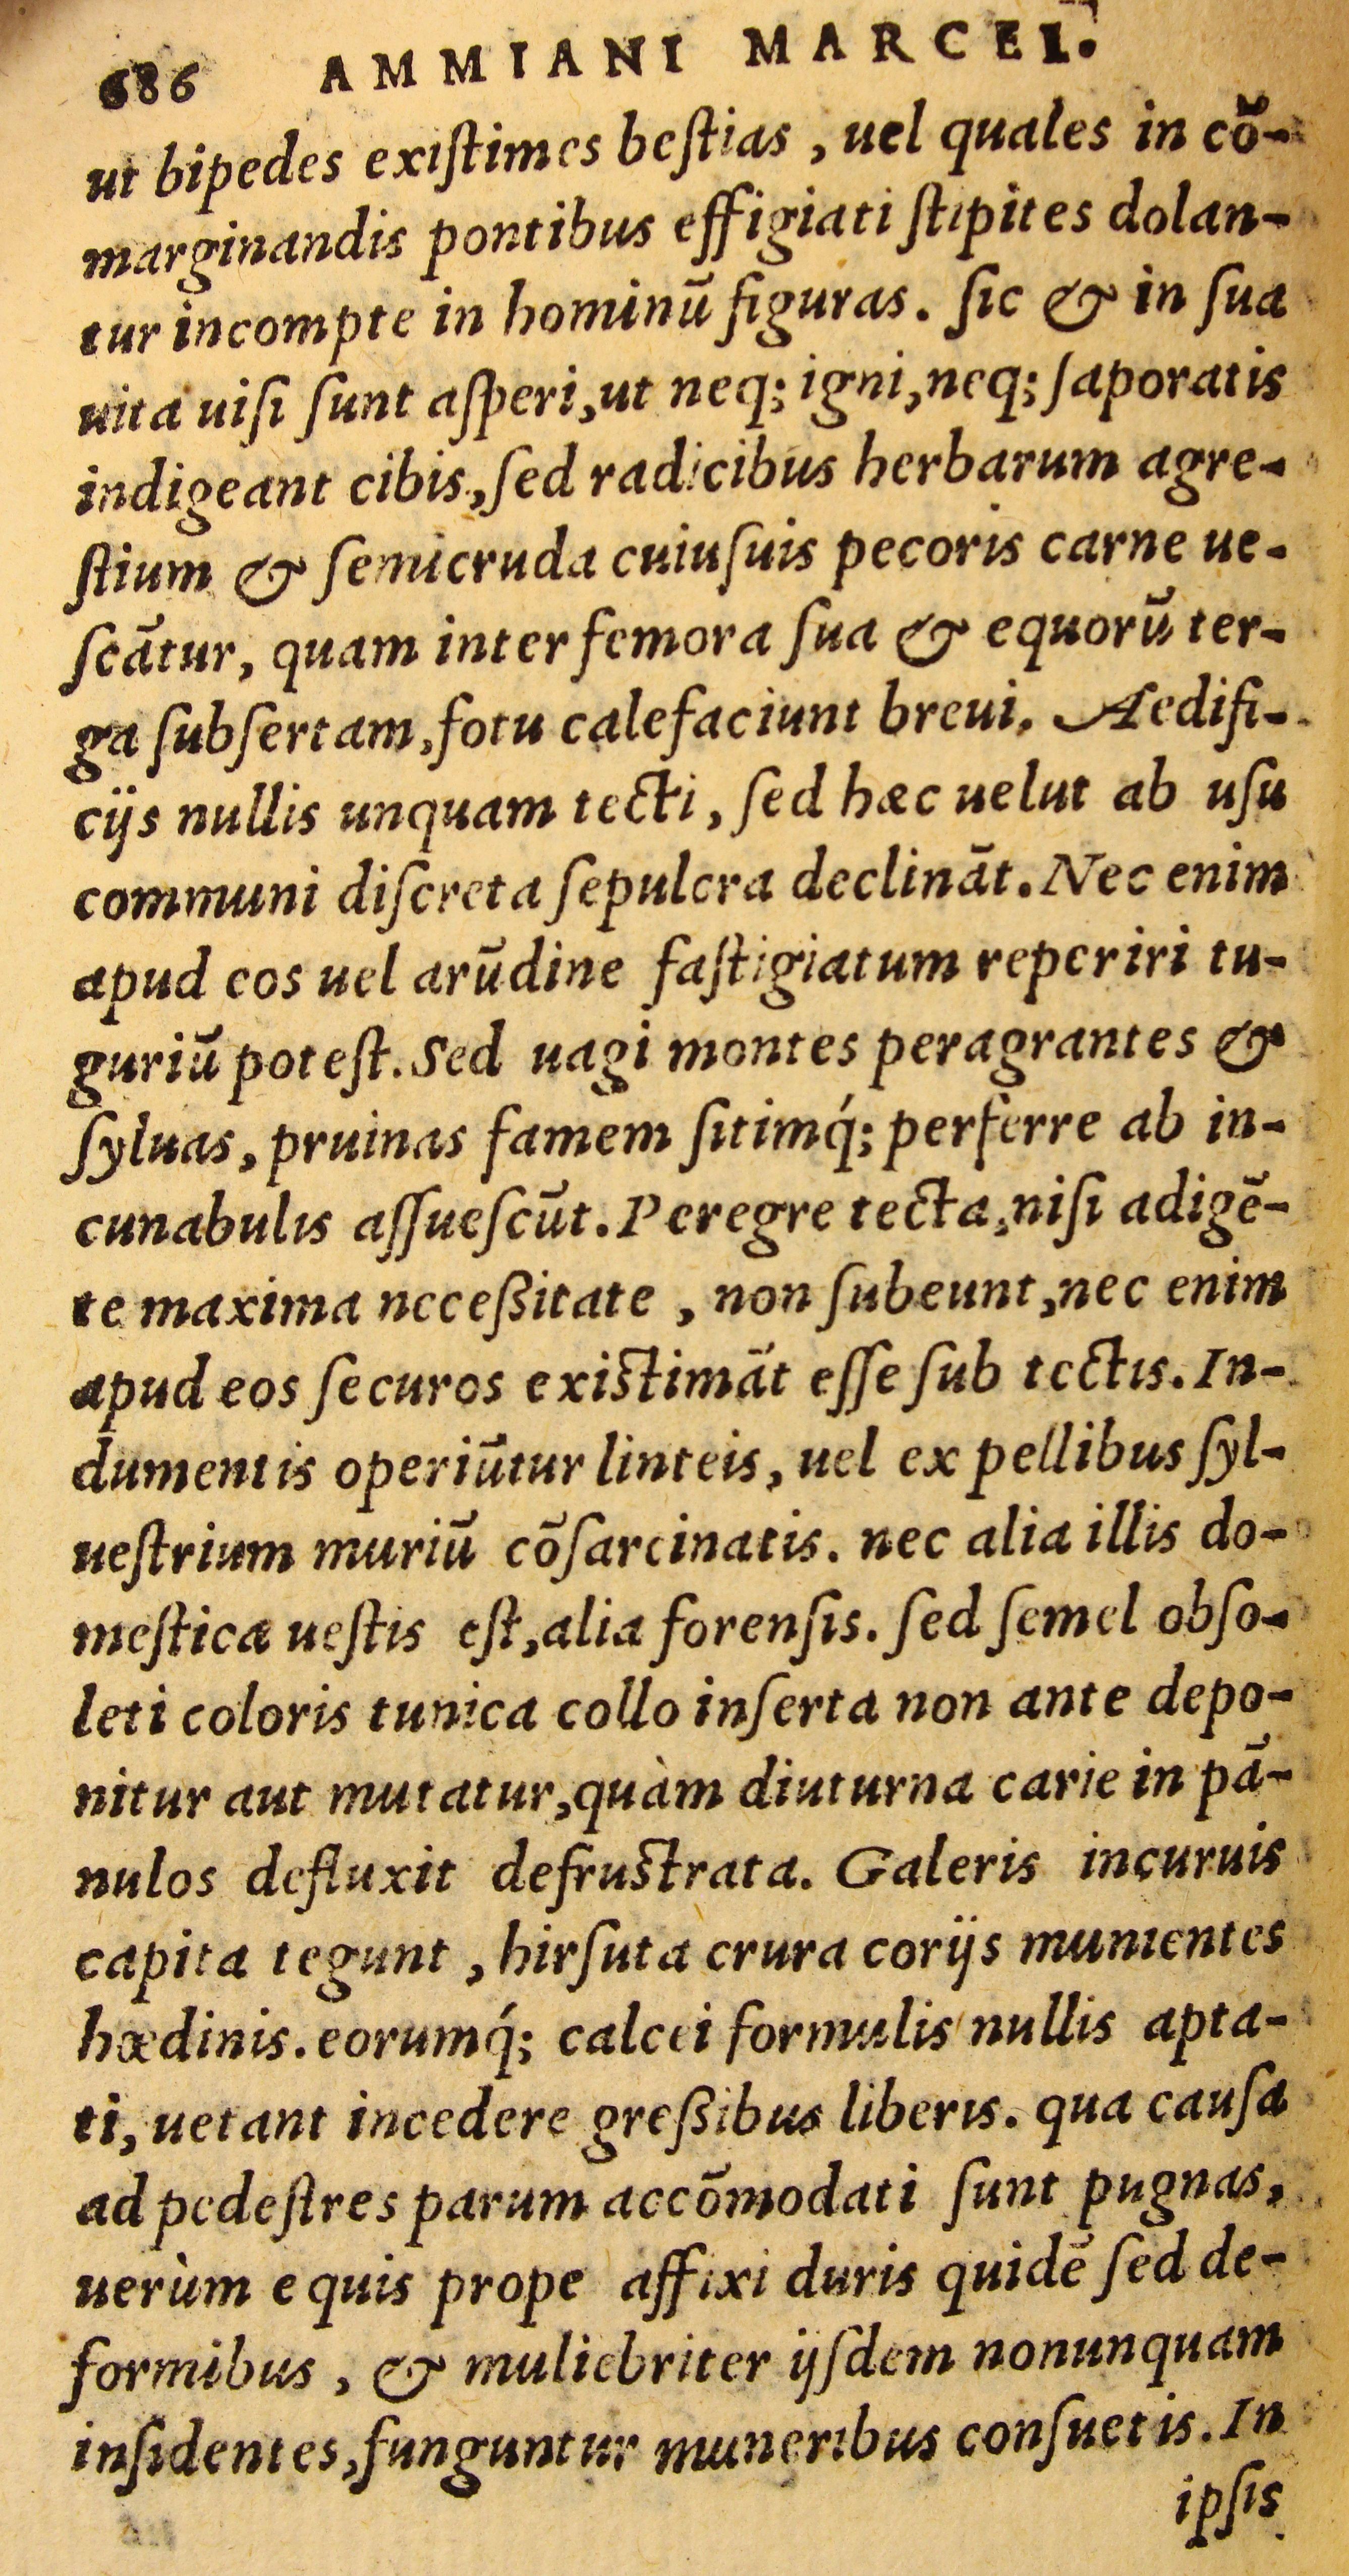 686 AMMIANI MARCEL.
ut bipedes exiſtimes beſtias, uel quales in cō-
marginandis pontibus effigiati ſtipites dolan-
tur incompte in hominū figuras. ſic & in ſua
uita uiſi ſunt aſperi, ut neq; igni, neq; ſaporatis
indigeant cibis, ſed radicibus herbarum agre-
ſtium & ſemicruda cuiuſuis pecoris carne ue-
ſcātur, quam inter femora ſua & equorū ter-
ga ſubſertam, fotu calefaciunt breui. Aedifi-
cijs nullis unquam tecti, ſed hæc uelut ab uſu
communi diſcreta ſepulcra declināt. Nec enim
apud eos uel arūdine faſtigiatum reperiri tu-
guriū poteſt. Sed uagi montes peragrantes &
ſyluas, pruinas famem ſitimq́; perferre ab in-
cunabulis aſſueſcūt. Peregre tecta, niſi adigē-
te maxima neceßitate, non ſubeunt, nec enim
apud eos ſecuros exiſtimāt eſſe ſub tectis. In-
dumentis operiūtur linteis, uel ex pellibus ſyl-
ueſtrium muriū cōſarcinatis. nec alia illis do-
meſtica ueſtis eſt, alia forenſis. ſed ſemel obſo-
leti coloris tunica collo inſerta non ante depo-
nitur aut mutatur, quàm diuturna carie in pā-
nulos defluxit defruſtrata. Galeris incuruis
capita tegunt, hirſuta crura corijs munientes
hœdinis. eorumq́; calcei formulis nullis apta-
ti, uetant incedere greßibus liberis. qua cauſa
ad pedeſtres parum accōmodati ſunt pugnas,
uerùm equis prope affixi duris quidē ſed de-
formibus, & muliebriter ijſdem nonunquam
inſidentes, funguntur muneribus conſuetis. In
ipſis